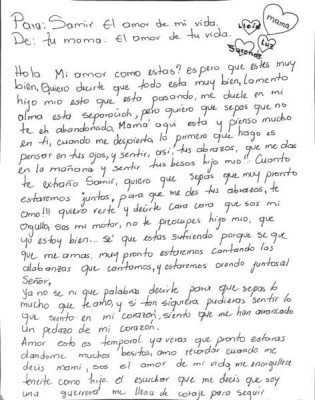 Para: Samir El amor de mi vida.
De: tu mama. El amor de tu vida.
mama
Luz
Hola Mi amor como estas? espero que estes muy
bien, Quiero decirte que todo esta muy bien, Lamento
hijo mio esto que esta pasando, me duele en mi
alma esta separación, pero quiero que sepas que no
te eh abandonado, Mamá aqui esta y pienso mucho
en ti, cuando me despierto lo primero que hago es
pensar en tus ojos, y sentir, asi, tus abrazos, que me das
en la mañana y sentir tus besos hijo mio!! Cuanto
te extraño Samir, quiero que sepas que muy pronto
estaremos juntos, para que me des tus abrazos, te
amo!!! quiero verte y decirte cara cara que sos mi
orgullo, sos mi motor, no te preocupes hijo mio, que
yo estoy bien... se' que estas sufriendo porque se que
que me amas. muy pronto estaremos cantando las
alabanzas que cantamos, y estaremos orando juntos al
Señor,
Ya no se ni que palabras decirte para que sepas lo
mucho que te amo, y si tan siquiera pudieras sentir lo
que siento en mi corazón, siento que me han arrancado
un pedazo de mi corazón.
Amor esto es temporal. ya veras que pronto estaras
dandome muchos besitos, amo recordar cuando me
decis mami, sos el amor de mi vida, me enorgullece
tenerte como hijo. el escuchar que me decis que soy
una guerrera me llena de coraje para seguir